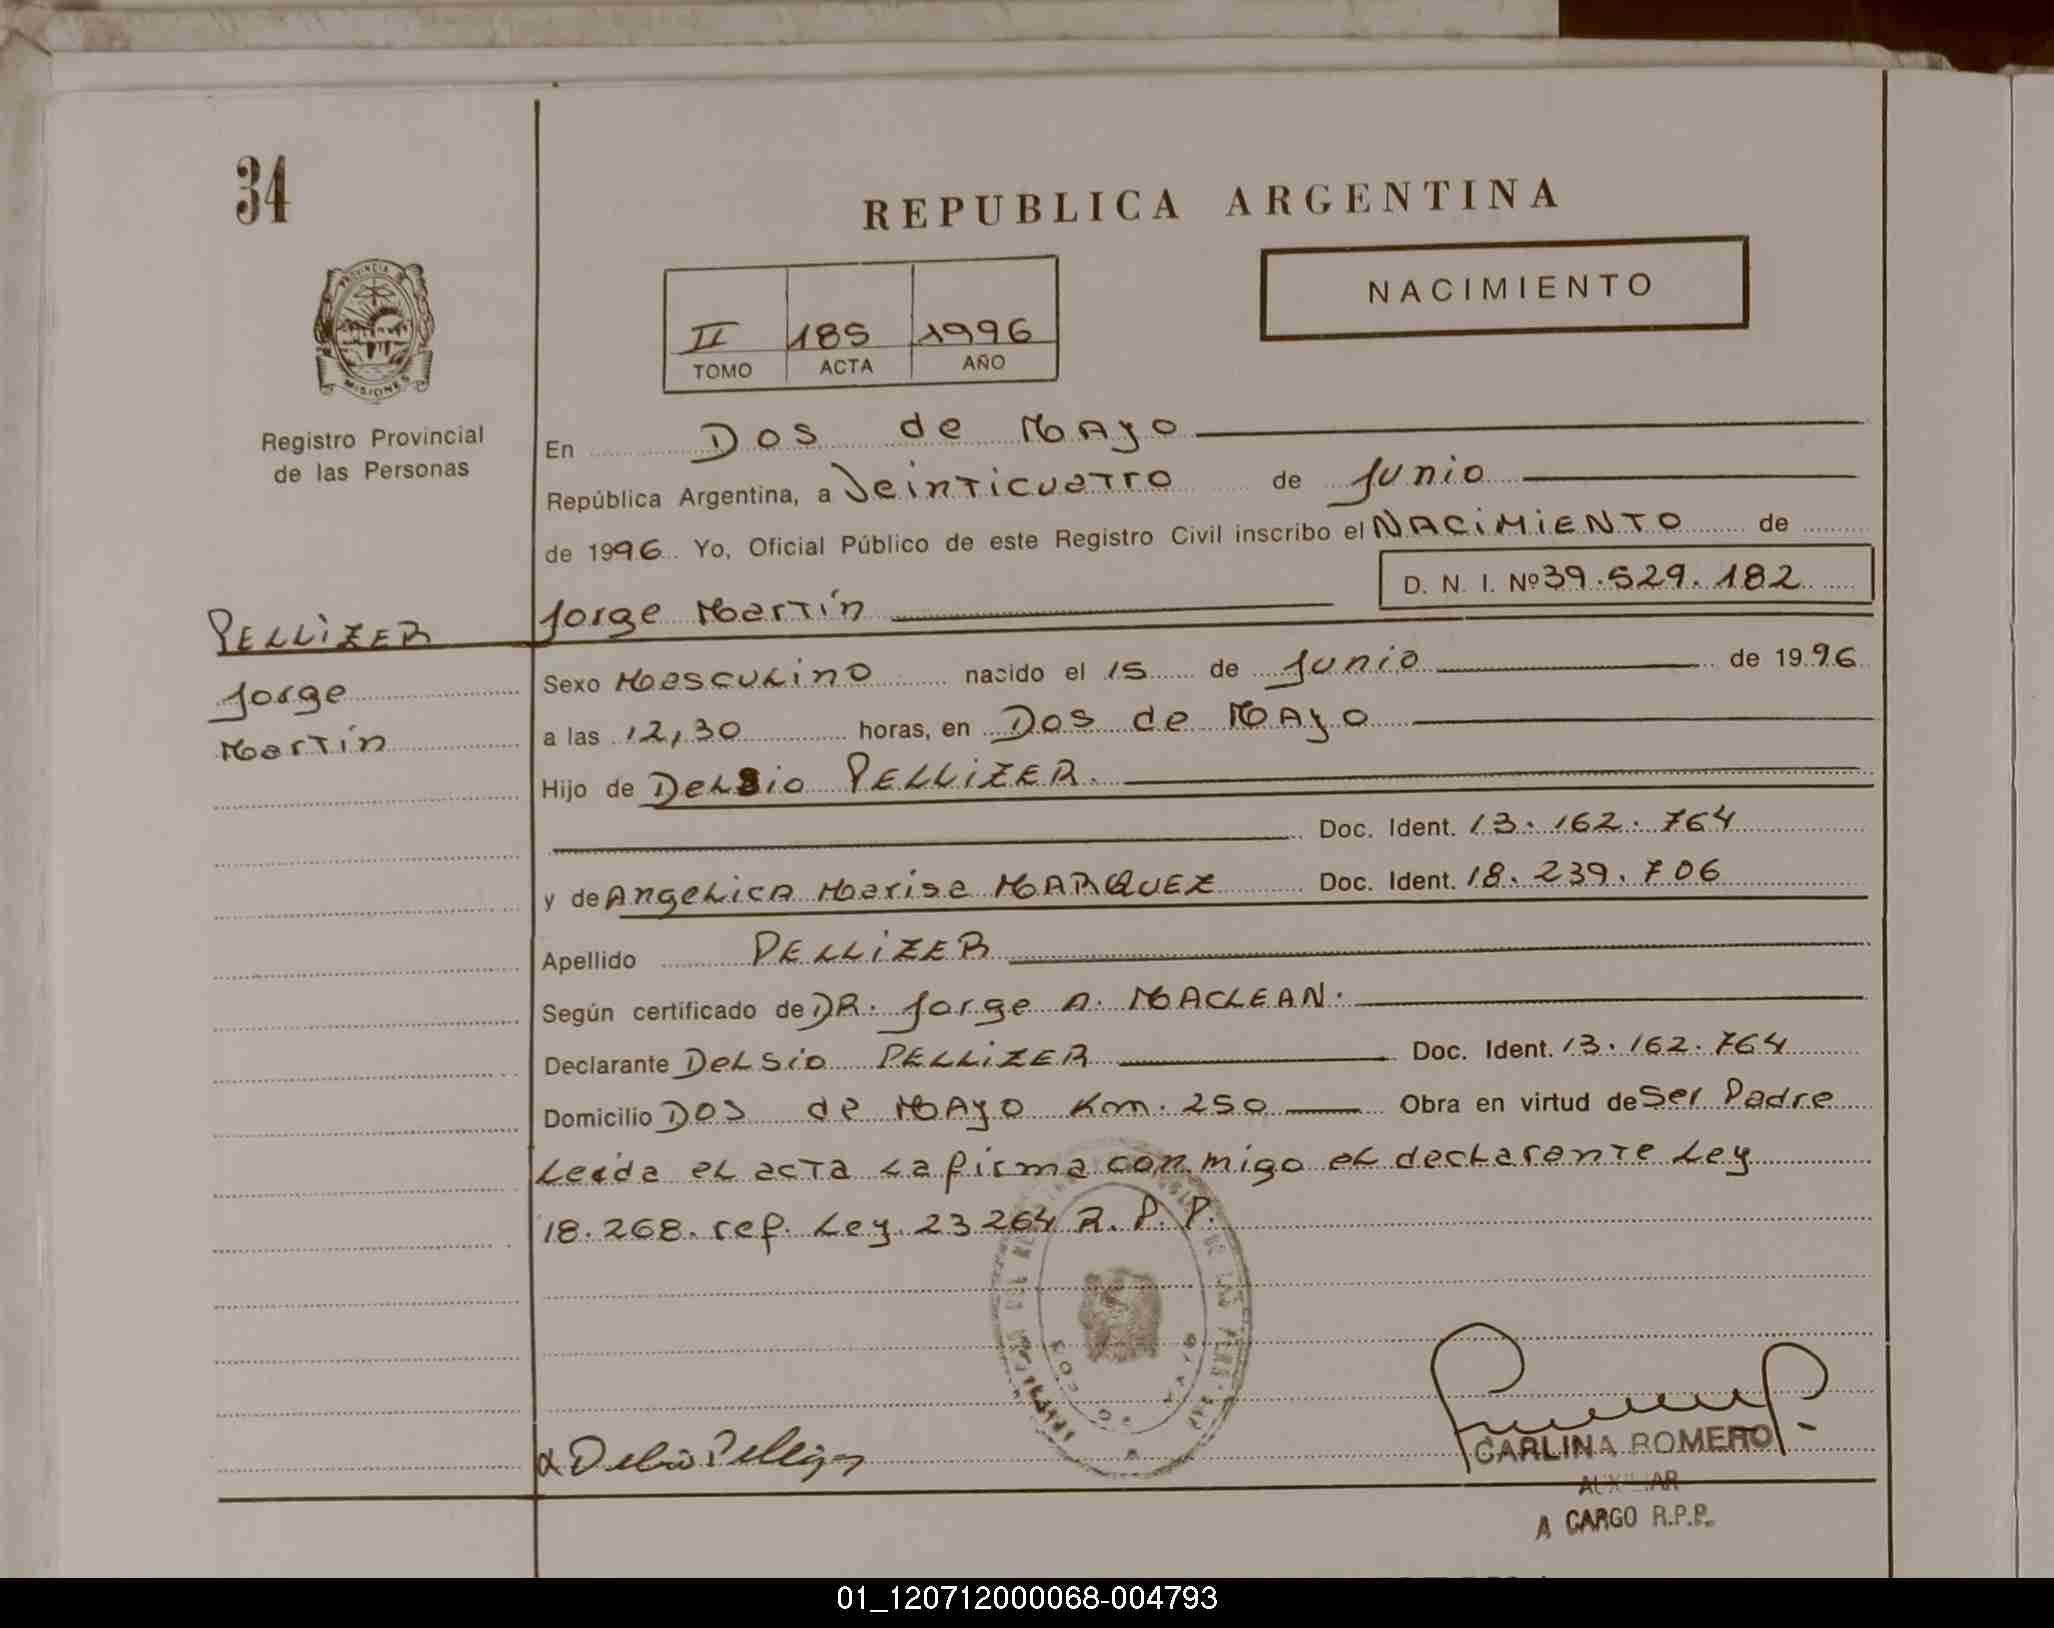 34
REPUBLICA ARGENTINA
NACIMIENTO
II 185 1996
TOMO ACTA AÑO
PROVINCIA DE MISIONES
Registro Provincial
de las Personas
PELLIZER
Jorge
Martín
En Dos de MAyo
República Argentina, a Veinticuatro de Junio
de 1996 Yo, Oficial Público de este Registro Civil inscribo el NACIMIENTO de
Jorge Martín D. N. I. Nº 39.529.182
Sexo Masculino nacido el 15 de Junio de 1996
a las 12,30 horas, en Dos de MAyo
Hijo de Delsio PELLIZER.
Doc. Ident. 13.162.764
y de Angelica Marisa MARQUEZ Doc. Ident. 18.239.706
Apellido PELLIZER
Según certificado de DR. Jorge A. MACLEAN.
Declarante Delsio PELLIZER Doc. Ident. 13.162.764
Domicilio Dos de MAyo Km. 250 Obra en virtud de Ser Padre
Leida el acta la firma conmigo el declarante Ley
18.268. ref. Ley 23264 R.P.P.
DOS DE MAYO
CARLINA ROMERO
AUXILIAR
A CARGO R.P.P.
01_120712000068-004793